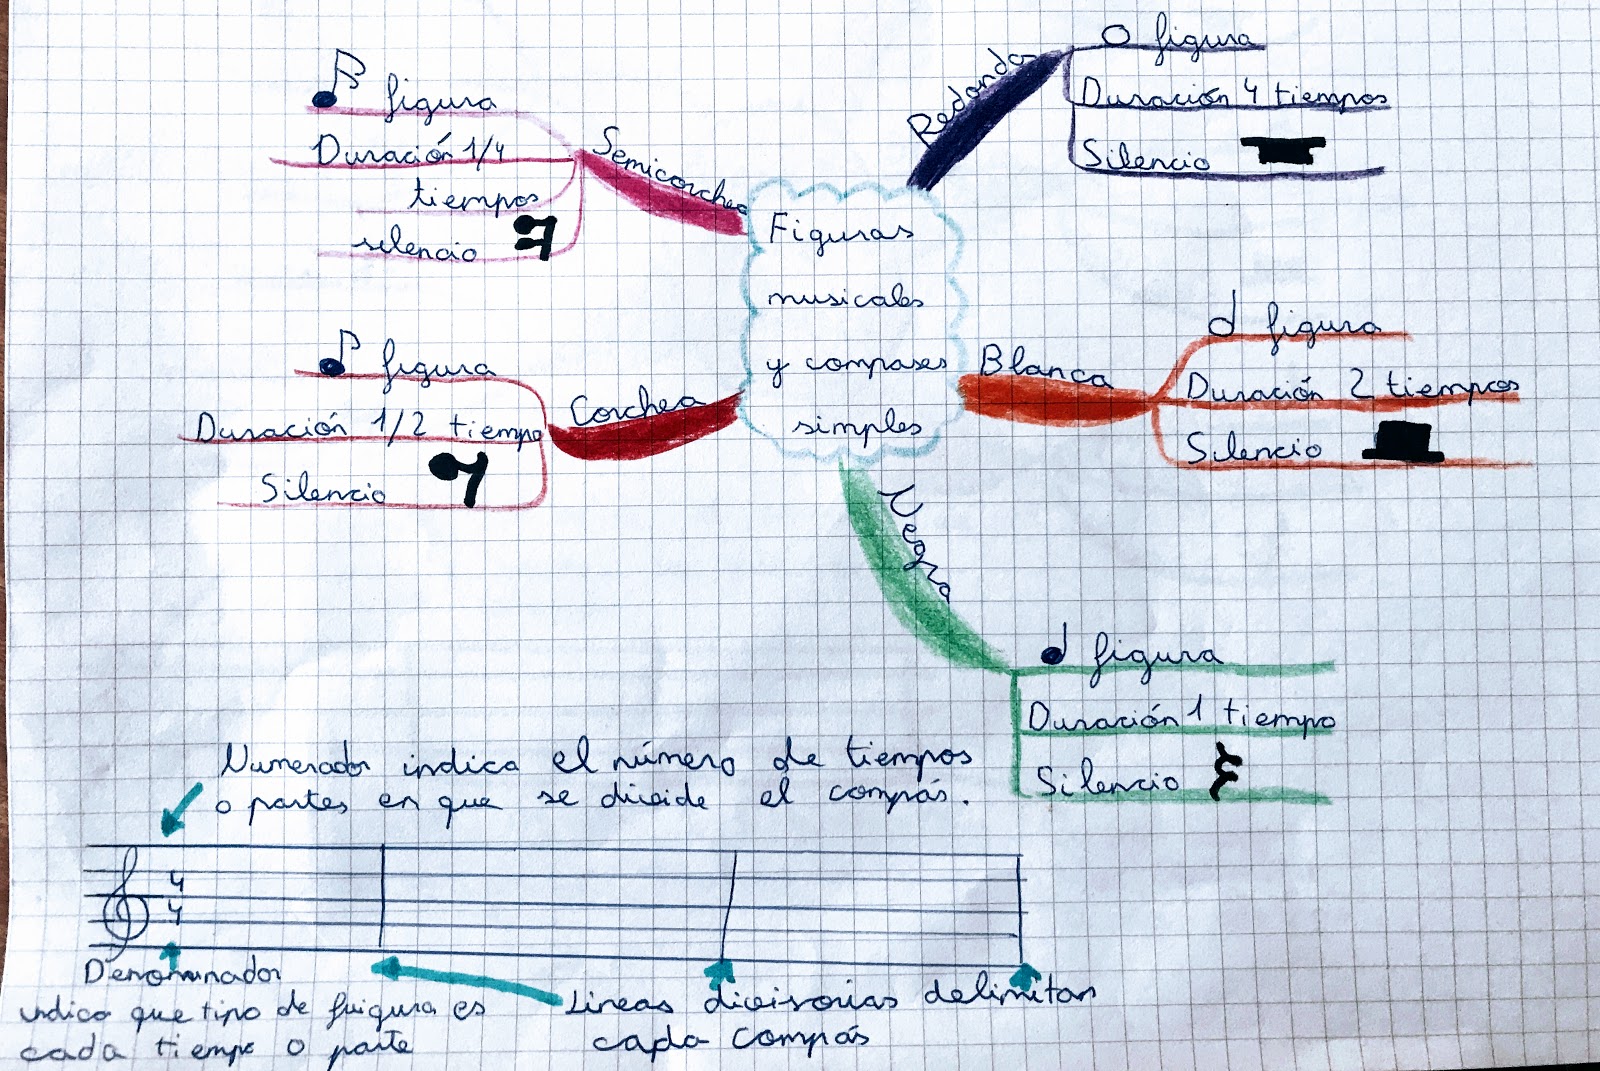 Figuras
musicales
y compases
simples
Redonda
figura
Duración 4 tiempos
Silencio
Blanca
figura
Duración 2 tiempos
Silencio
Negra
figura
Duración 1 tiempo
Silencio
Corchea
figura
Duración 1/2 tiempo
Silencio
Semicorchea
figura
Duración 1/4
tiempos
silencio
Numerador indica el número de tiempos
o partes en que se divide el compás.
4
4
Denominador
indica que tipo de fuigura es
cada tiempo o parte
Lineas divisorias delimitan
cada compás